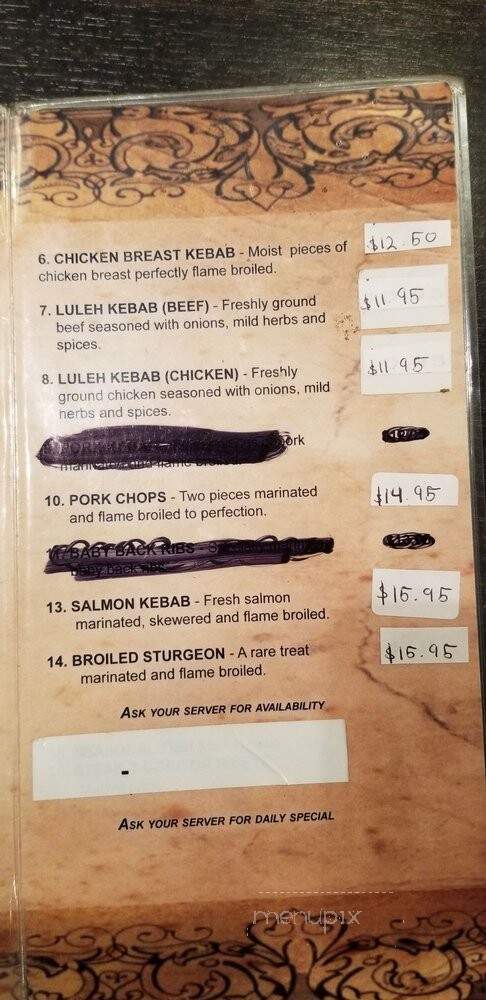 6. CHICKEN BREAST KEBAB - Moist pieces of $12.50
chicken breast perfectly flame broiled.
7. LULEH KEBAB (BEEF) - Freshly ground $11.95
beef seasoned with onions, mild herbs and
spices.
8. LULEH KEBAB (CHICKEN) - Freshly $11.95
ground chicken seasoned with onions, mild
herbs and spices.
pork
marinated and flame broiled
10. PORK CHOPS - Two pieces marinated $14.95
and flame broiled to perfection.
11. BABY BACK RIBS -
baby back ribs
13. SALMON KEBAB - Fresh salmon $15.95
marinated, skewered and flame broiled.
14. BROILED STURGEON - A rare treat $15.95
marinated and flame broiled.
ASK YOUR SERVER FOR AVAILABILITY
-
ASK YOUR SERVER FOR DAILY SPECIAL
menupix